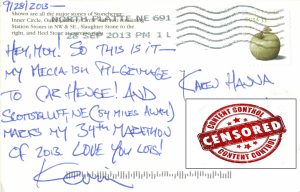 9/28/2013 —
Shown are all the major stones of Stonehenge:
Inner Circle, Ou
Station Stones in NW & SE, Slaughter Stone to the
right, and Heel Stone
NORTH PLATTE NE 691
28 SEP 2013 PM 1 L
HEY, MOM! SO THIS IS IT —
MY MECCA-ISH PILGRIMAGE
TO CAR HENGE! AND
SCOTTSBLUFF, NE (54 MILES AWAY)
MARKS MY 34TH MARATHON
OF 2013. LOVE YOU LOTS!
Kevin
KAREN HANNA
CONTENT CONTROL
CENSORED
CONTENT CONTROL